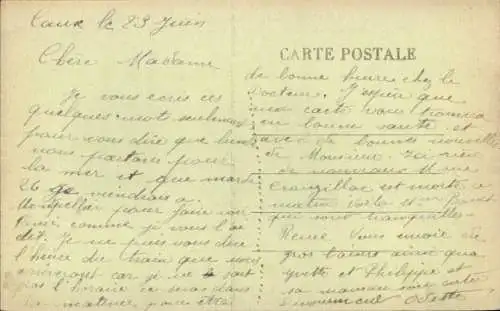 Caux le 23 Juin
Chère Madame
Je vous écris ces
quelques mot seulement
pour vous dire que lundi
nous partons pour
la mer et que mardi
26 je viendrais a
Montpellier pour
comme je vous l'ai
dit. Je ne puis vous dire
l'heure du train que nous
car je ne sait
pas l'horaire je serais dans
la matinée pour être
CARTE POSTALE
de bonne heure chez le
docteur. J'espère que
ma carte vous trouvera
en bonne santé et
avec de bonnes nouvelles
de Monsieur. J'ai rien
de nouveau Mme
est morte a
matin
qui sont tranquilles
Renée vous envoie de
gros baisers ainsi qua
Yvette et Philippe et
sa maman
Odette